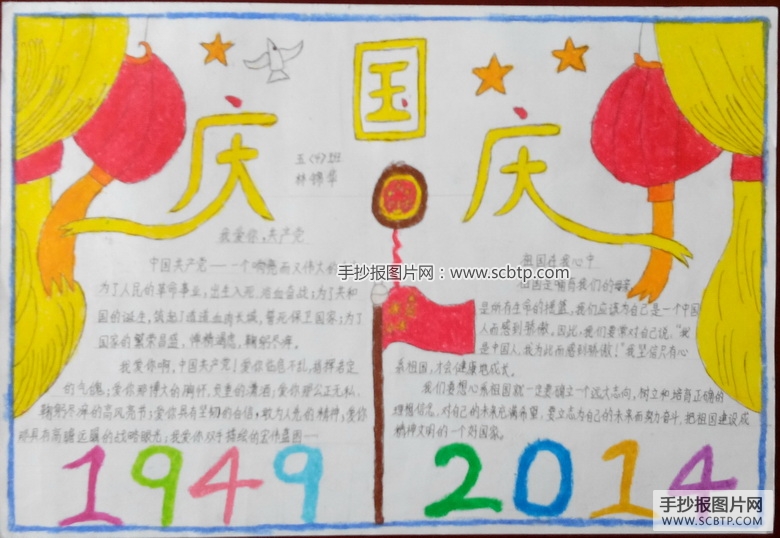 庆
国
庆
五(4)班
林锦华
我爱你,共产党
中国共产党——一个响亮而又伟大的
为了人民的革命事业,出生入死,浴血奋战;为了共和
国的诞生,筑起了道道血肉长城,誓死保卫国家;为了
国家的繁荣昌盛,惮精竭虑,鞠躬尽瘁。
我爱你啊,中国共产党!爱你临危不乱,指挥若定
的气魄;爱你那博大的胸怀,负重的潇洒;爱你那公正无私、
鞠躬尽瘁的高风亮节;爱你具有坚韧的自信,敢为人先的精神;爱你
那具有高瞻远瞩的战略眼光;我爱你双手描绘的宏伟蓝图——
祖国在我心中
祖国是哺育我们的母亲
是所有生命的摇篮,我们应该为自己是一个中国
人而感到骄傲。因此,我们要常对自己说,"我
是中国人,我为此而感到骄傲!"我坚信只有心
系祖国,才会健康地成长。
我们要想心系祖国就一定要树立一个远大志向,树立和培育正确的
理想信念,对自己的未来充满希望,要立志为自己的未来而努力奋斗,把祖国建设成
精神文明的一个好国家。
手抄报图片网:www.scbtp.com
1949
2014
手抄报图片网
WWW.SCBTP.COM